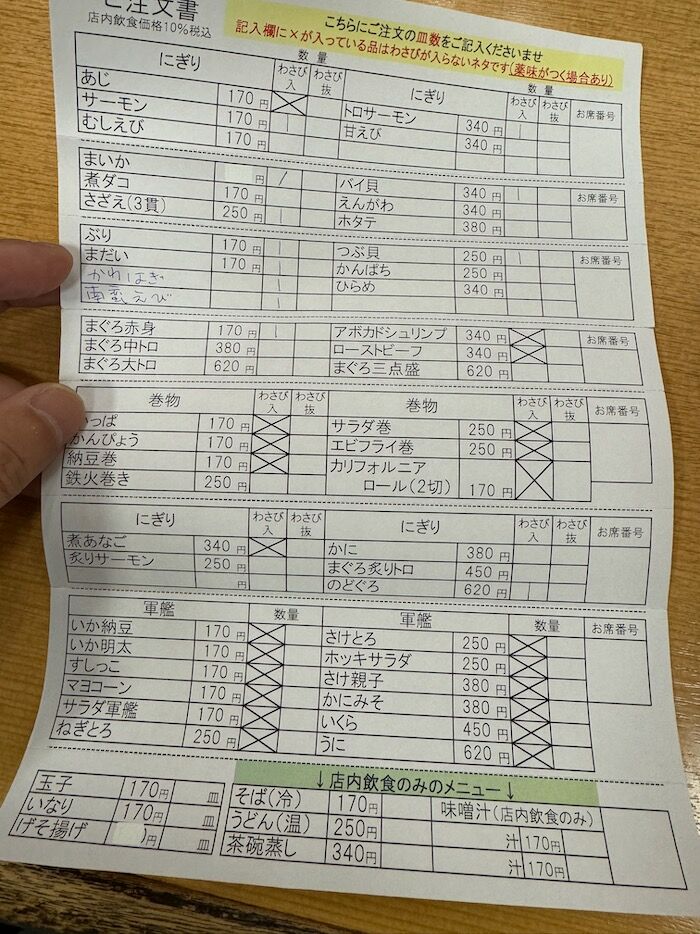 ご注文書
店内飲食価格10%税込
こちらにご注文の皿数をご記入くださいませ
記入欄に×が入っている品はわさびが入らないネタです(薬味がつく場合あり)
にぎり 数量 わさび入 わさび抜 にぎり 数量 わさび入 わさび抜 お席番号
あじ 170円 トロサーモン 340円
サーモン 170円 甘えび 340円
むしえび 170円
まいか 円 バイ貝 340円 お席番号
煮ダコ 170円 えんがわ 340円
さざえ(3貫) 250円 ホタテ 380円
ぶり 170円 つぶ貝 250円 お席番号
まだい 170円 かんぱち 250円
かわはぎ ひらめ 340円
南蛮えび
まぐろ赤身 170円 アボカドシュリンプ 340円 お席番号
まぐろ中トロ 380円 ローストビーフ 340円
まぐろ大トロ 620円 まぐろ三点盛 620円
巻物 わさび入 わさび抜 巻物 わさび入 わさび抜 お席番号
いっぱ 170円 サラダ巻 250円
かんぴょう 170円 エビフライ巻 250円
納豆巻 170円 カリフォルニア
鉄火巻き 250円 ロール(2切) 170円
にぎり わさび入 わさび抜 にぎり わさび入 わさび抜 お席番号
煮あなご 340円 かに 380円
炙りサーモン 250円 まぐろ炙りトロ 450円
円 のどぐろ 620円
軍艦 数量 軍艦 数量 お席番号
いか納豆 170円 さけとろ 250円
いか明太 170円 ホッキサラダ 250円
すしっこ 170円 さけ親子 380円
マヨコーン 170円 かにみそ 380円
サラダ軍艦 170円 いくら 450円
ねぎとろ 250円 うに 620円
↓店内飲食のみのメニュー↓
玉子 170円 皿 そば(冷) 170円 味噌汁(店内飲食のみ)
いなり 170円 皿 うどん(温) 250円 汁 170円
げそ揚げ 円 皿 茶碗蒸し 340円 汁 170円